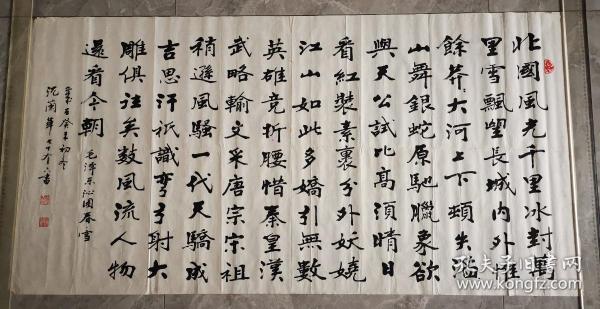 北國風光千里冰封萬
里雪飄望長城內外惟
餘莽〻大河上下頓失滔〻
山舞銀蛇原馳臘象欲
與天公試比高須晴日
看紅裝素裹分外妖嬈
江山如此多嬌引無數
英雄竞折腰惜秦皇漢
武略輸文采唐宗宋祖
稍遜風騷一代天驕成
吉思汗祇識彎弓射大
雕俱往矣数風流人物
還看今朝
毛澤東沁園春雪
癸未初冬
沈蘭華
書
孔夫子旧書网
www.kongfz.com